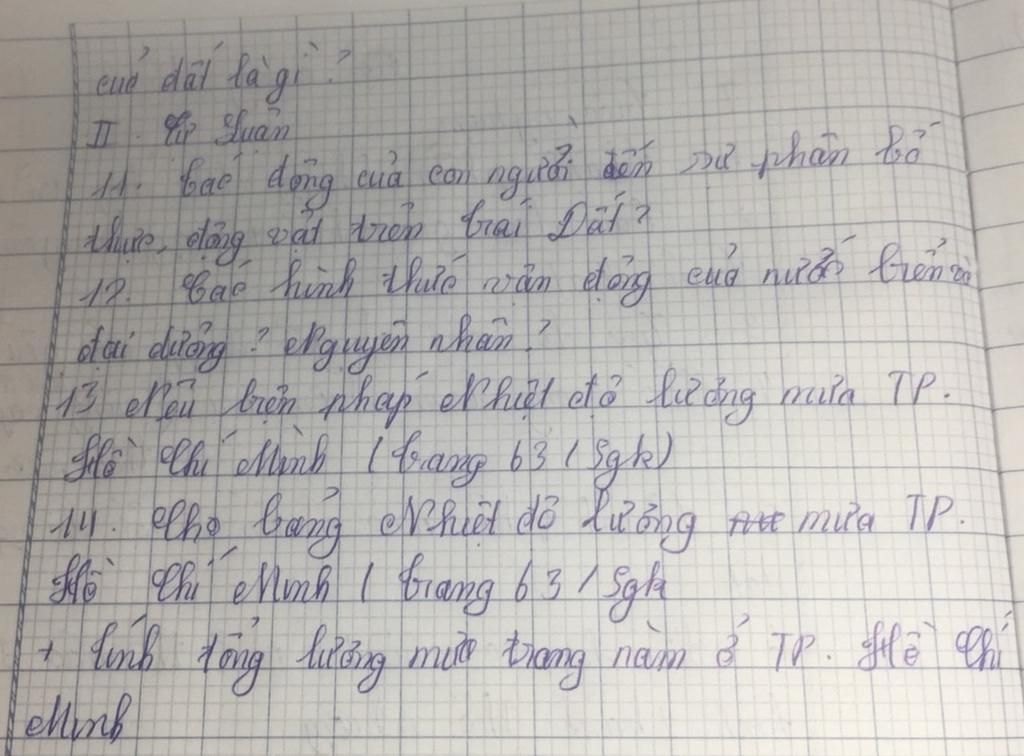 của đất là gì?
II. Tự luận
11. Tác động của con người đến sự phân bố
thực, động vật trên trái Đất?
12. Các hình thức vận động của nước biển và
đại dương? Nguyên nhân?
13 Nêu biện pháp Nhiệt độ lượng mưa TP.
Hồ Chí Minh (trang 63 / Sgk)
14. Cho bảng Nhiệt độ lượng mưa TP.
Hồ Chí Minh ( trang 63 / Sgk
+ tính tổng lượng mưa trong năm ở TP. Hồ Chí
Minh